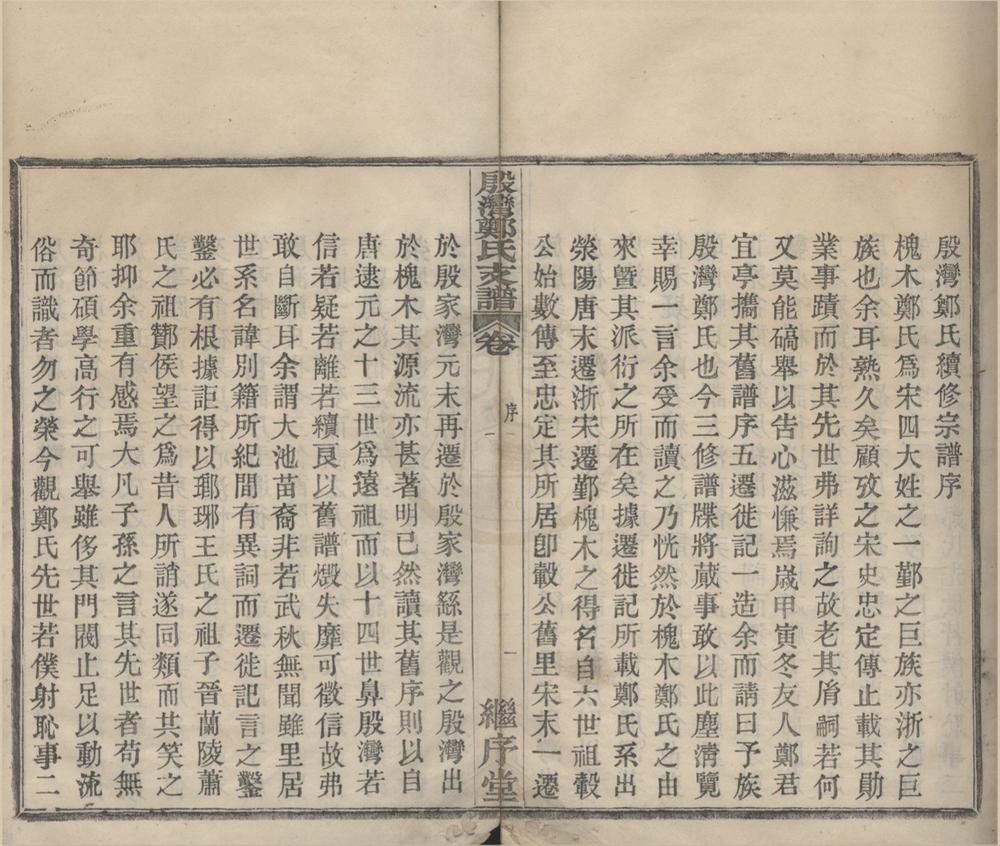 殷灣鄭氏續修宗譜序
槐木鄭氏爲宋四大姓之一鄞之巨族亦浙之巨
族也余耳熟久矣顧攷之宋史忠定傳止載其勛
業事蹟而於其先世弗詳詢之故老其㡳嗣若何
又莫能碻舉以告心滋慊焉嵗甲寅冬友人鄭君
宜亭攜其舊譜序五遷徙記一造余而請曰予族
殷灣鄭氏也今三修譜牒將蕆事敢以此塵淸覽
幸賜一言余受而讀之乃恍然於槐木鄭氏之由
來曁其派衍之所在矣據遷徙記所載鄭氏系出
滎陽唐末遷浙宋遷鄞槐木之得名自六世祖毅
公始數傳至忠定其所居卽毅公舊里宋末一遷
殷灣鄭氏支譜
卷
序
一
繼序堂
於殷家灣元末再遷於殷家灣繇是觀之殷灣出
於槐木其源流亦甚著明已然讀其舊序則以自
唐逮元之十三世爲遠祖而以十四世鼻殷灣若
信若疑若離若續良以舊譜燬失靡可徵信故弗
敢自斷耳余謂大池苗裔非若武秋無聞雖里居
世系名諱別籍所紀間有異詞而遷徙記言之鑿
鑿必有根據詎得以瑯琊王氏之祖子晉蘭陵蕭
氏之祖酇侯望之爲昔人所誚遂同類而共笑之
耶抑余重有感焉大凡子孫之言其先世者苟無
奇節碩學高行之可舉雖侈其門閥止足以動流
俗而識者勿之榮今觀鄭氏先世若僕射恥事二